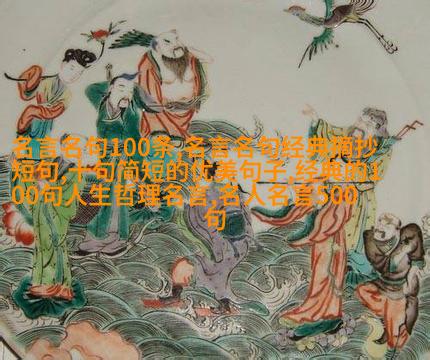 名言名句100条,名言名句经典摘抄
短句,十句简短的优美句子,经典的1
00句人生哲理名言,名人名言500
句